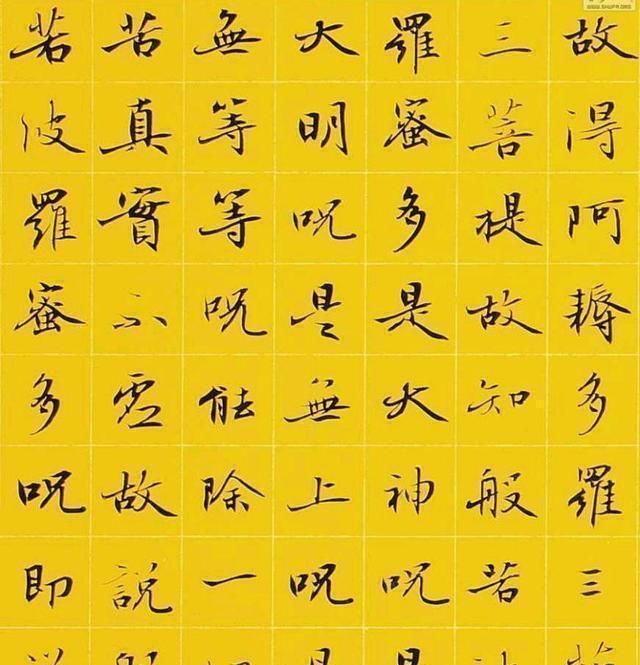 故得阿耨多羅三
三菩提故知般若
羅蜜多是大神呪
大明呪是無上呪
無等等呪能除一
苦真實不虛故說
若波羅蜜多呪即